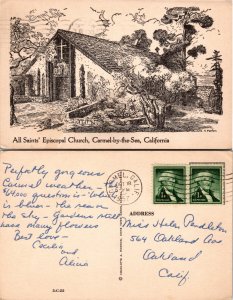 All Saints' Episcopal Church, Carmel-by-the-Sea, California
Perfectly gorgeous
Carmel weather - the
$64,000 question is - Which
is bluer - the ocean or
the sky - Gardens still
have many flowers
Best love -
Cecilia
and
Alina
ADDRESS
Miss Helen Pendleton
564 Oakland Ave
Oakland
Calif.